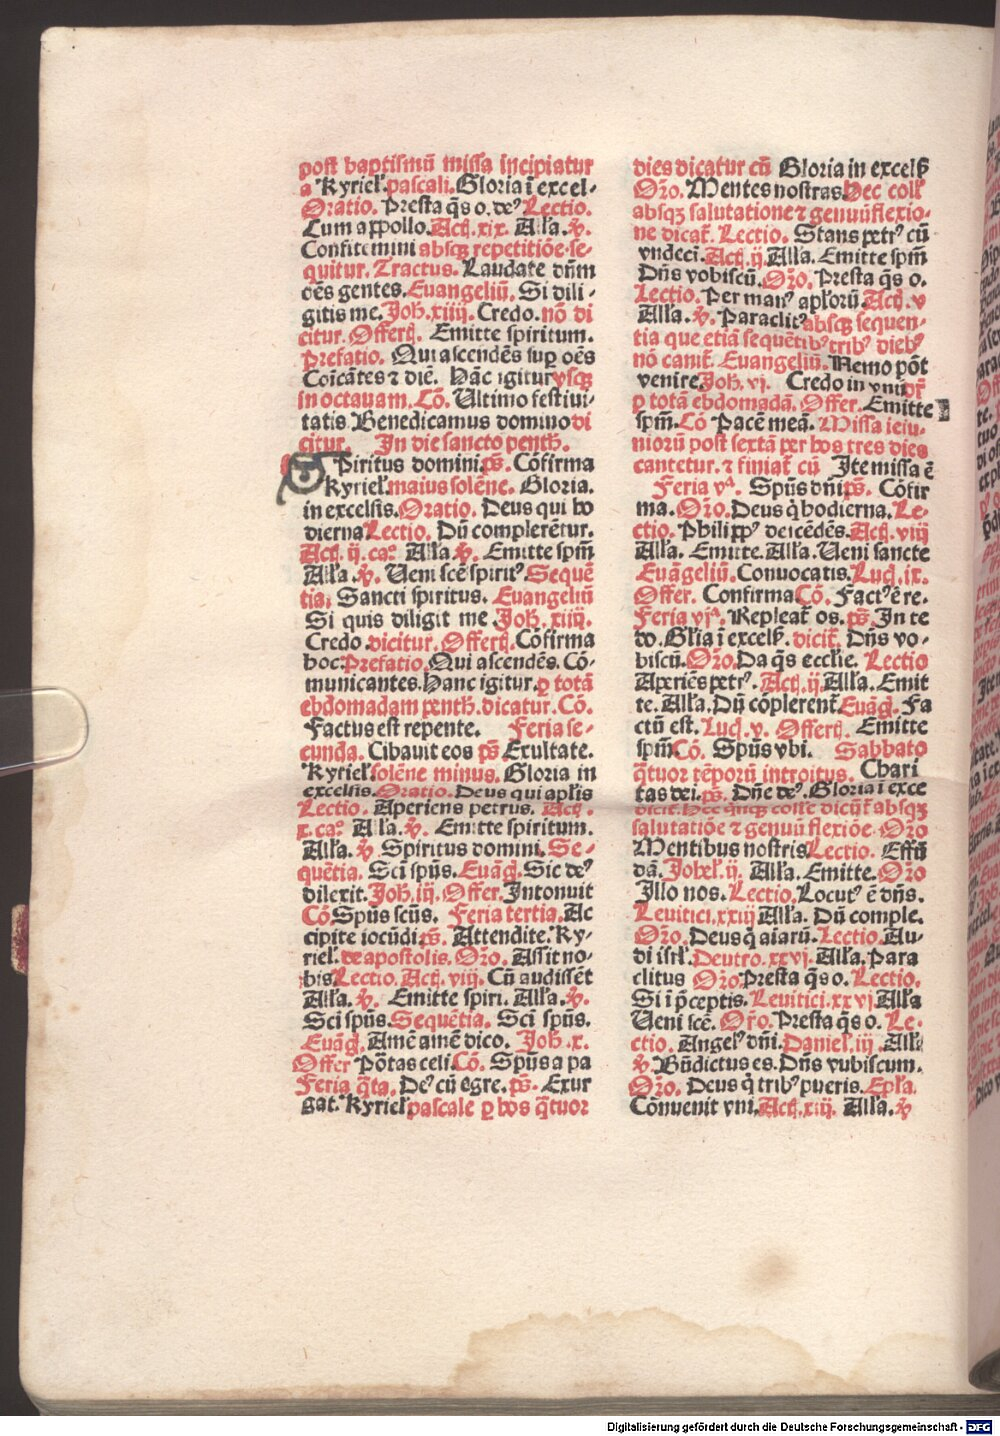 post baptismū missa incipiatur
a Kyriel̉.pascali.Gloria ī excel-
Oratio. Presta q̄s o.deꝰ Lectio.
Cum appollo.Act̉.xix. All̉a.ꝟ.
Confitemini absqꝫ repetitiōe-se-
quitur. Tractus. Laudate dn̄m
oēs gentes.Euangeliū. Si dili-
gitis me.Joh̉.xiiij. Credo.nō di
citur. Offert̉. Emitte spiritum.
Prefatio. Qui ascendēs suꝑ oēs
Coīcātes ⁊ diē. Hāc igitur vsqꝫ
in octauam. Cō. Ultimo festiui-
tatis Benedicamus domino di
citur. In die sancto pentĥ.
Spiritus domini.p̄s. Cōfirma
Kyriel̉.maius solēne. Gloria.
in excelsis.Oratio. Deus qui ho
dierna Lectio. Dū complerētur.
Act̉. ij. caº All̉a ꝟ. Emitte spm̄
All̉a.ꝟ. Ueni scē spiritꝰ Sequē
tia. Sancti spiritus. Euangeliū
Si quis diligit me Joh̉. xiiij.
Credo.dicitur. Offert̉. Cōfirma
hoc.Prefatio.Qui ascendēs. Cō-
municantes.Hanc igitur.ꝑ totā
ebdomadam pentĥ.dicatur.Cō.
Factus est repente. Feria se-
cunda. Cibauit eos p̄s Exultate.
Kyriel̉ solēne minus. Gloria in
excelsis.Oratio. Deus qui apl̉is
Lectio. Aperiens petrus. Act̉.
x.caº All̉a.ꝟ. Emitte spiritum.
All̉a.ꝟ Spiritus domini.Se-
quētia. Sci spūs. Euāg̉. Sic deꝰ
dilexit. Joh̉.iij. Offer.Intonuit
Cō Spūs scūs. Feria tertia. Ac
cipite iocūdi.p̄s. Attendite.Ky-
riel̉.de apostolis. Or̄o. Assit no-
bis Lectio. Act̉. viij. Cū audissēt
All̉a. ꝟ. Emitte spiri. All̉a.ꝟ.
Sci spūs.Sequētia. Scī spūs.
Euāg̉. Amē amē dico. Joh̉.x.
Offer Pōtas celi.Cō. Spūs a pa
Feria q̄ta. Deꝰ cū egre. p̄s. Exur
gat.Kyriel̉ pascale ꝑ hos q̄tuor
dies dicatur cū Gloria in excelß
Or̄o. Mentes nostras.Hec coll̉
absqꝫ salutatione ⁊ genuūflexio-
ne dicat̄. Lectio. Stans petrꝰ cū
vndeci.Act̉.ij.All̉a. Emitte spm̄
Dn̄s vobiscū.Or̄o. Presta q̄s o.
Lectio. Per manꝰ apl̉orū.Act̉.v
All̉a.ꝟ. Paraclitꝰ absqꝫ sequen-
tia que etiā sequētibꝰ tribꝰ diebꝰ
nō canit̄. Euangeliū.Nemo pōt
venire Joh̉. vj. Credo in vnū dr̄
ꝑ totā ebdomadā. Offer.Emitte
spm̄.Cō Pacē meā. Missa ieiu-
niorū post sextā per hos tres dies
cantetur.⁊ finiat̄ cū Ite missa ē
Feria vª. Spūs dn̄i p̄s. Cōfir
ma.Or̄o.Deus q̇ hodierna.Le-
ctio. Philippꝰ descēdēs.Act̉.viij
All̉a. Emitte.All̉a.Ueni sancte
Euāgeliū. Conuocatis.Luc̉.ix.
Offer. Confirma Cō. Factꝰ ē re.
Feria vjª. Repleat̄ os. p̄s. In te
do.Gl̉ia ī excelß. dicit̄. Dn̄s vo-
biscū.Or̄o.Da q̄s eccl̉ie. Lectio
Aperiēs petrꝰ. Act̉.ij.All̉a.Emit
te.All̉a.Dū cōplerent̄ Euāg̉.Fa
ctū est. Luc̉. v. Offert̉. Emitte
spm̄ Cō. Spūs vbi. Sabbato
q̄tuor tēporū introitus. Chari
tas dei.p̄s. Dn̄e deꝰ.Gloria ī exce
dicit̄.Hecqꝫ colle dicūt̄ absqꝫ
salutatiōe ⁊ genuū flexiōe Or̄o
Mentibus nostris Lectio. Effū
dā. Johel̉.ij. All̉a.Emitte.Or̄o
Illo nos.Lectio.Locutꝰ ē dn̄s.
Leuitici.xxiij All̉a. Dū comple.
Or̄o.Deus q̇ aīarū.Lectio.Au-
di isrl̉.Deutro.xxvj. All̉a.Para
clitus Or̄o.Presta q̄s o.Lectio.
Si ī p̄ceptis.Leuitici.xxvj All̉a
Ueni scē. Or̄o.Presta q̄s o. Le-
ctio. Angelꝰ dn̄i.Daniel̉.iij All̉
ꝟ. Bn̄dictus es.Dn̄s vobiscum.
Or̄o. Deus q̇ tribꝰ pueris.Epl̉a.
Cōnuenit vni.Act̉.xiij. All̉a.ꝟ
Digitalisierung gefördert durch die Deutsche Forschungsgemeinschaft - DFG